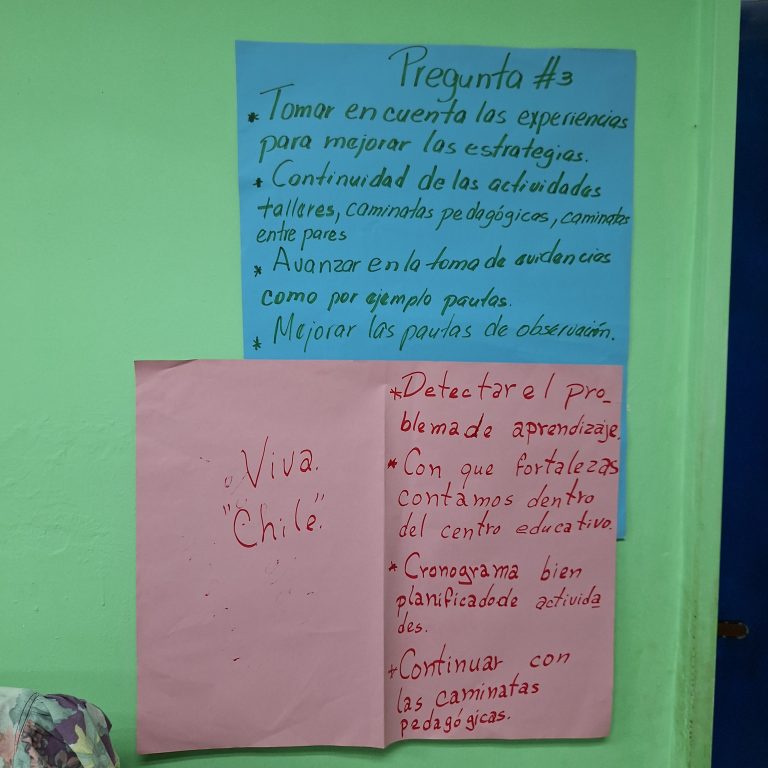 Pregunta #3
* Tomar en cuenta las experiencias
para mejorar las estrategias.
* Continuidad de las actividades
talleres, caminatas pedagógicas, caminatas
entre pares
* Avanzar en la toma de evidencias
como por ejemplo pautas.
* Mejorar las pautas de observación.
Viva.
"Chile".
* Detectar el pro_
blema de aprendizaje.
* Con que fortalezas
contamos dentro
del centro educativo.
* Cronograma bien
planificado de activida
des.
* Continuar con
las caminatas
pedagógicas.